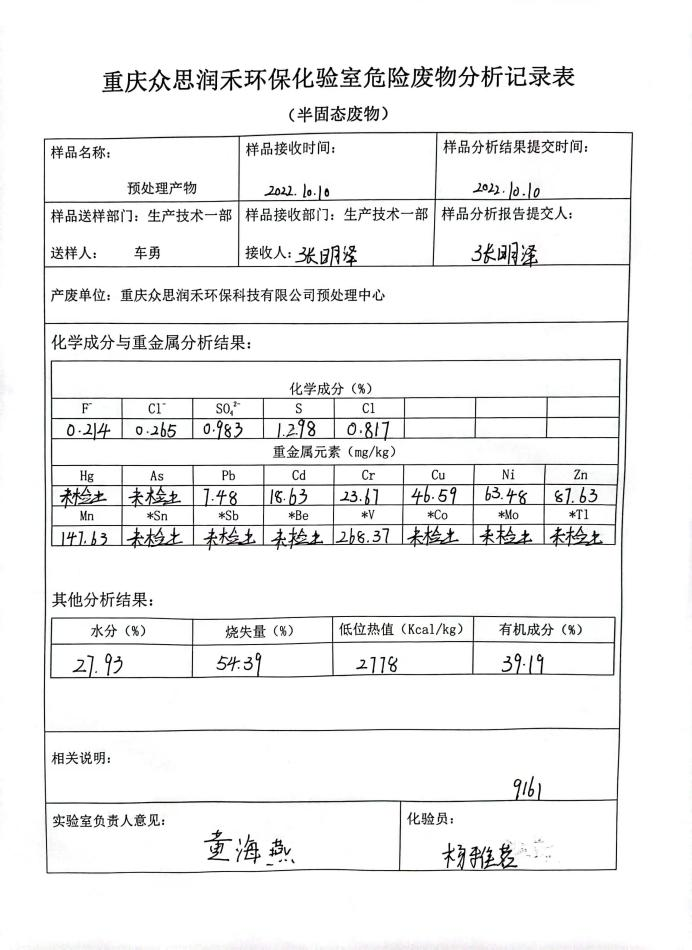 重庆众思润禾环保化验室危险废物分析记录表
（半固态废物）
样品名称： 样品接收时间： 样品分析结果提交时间：
预处理产物 2022.10.10 2022.10.10
样品送样部门：生产技术一部 样品接收部门：生产技术一部 样品分析报告提交人：
送样人： 车勇 接收人：张明泽 张明泽
产废单位：重庆众思润禾环保科技有限公司预处理中心
化学成分与重金属分析结果：
化学成分（%）
F⁻ Cl⁻ SO₄²⁻ S Cl
0.214 0.265 0.983 1.298 0.817
重金属元素（mg/kg）
Hg As Pb Cd Cr Cu Ni Zn
未检出 未检出 7.48 18.63 23.67 46.59 63.48 87.63
Mn *Sn *Sb *Be *V *Co *Mo *Tl
147.63 未检出 未检出 未检出 268.37 未检出 未检出 未检出
其他分析结果：
水分（%） 烧失量（%） 低位热值（Kcal/kg） 有机成分（%）
27.93 54.39 2778 39.19
相关说明：
9161
实验室负责人意见： 化验员：
黄海燕 杨雅茗